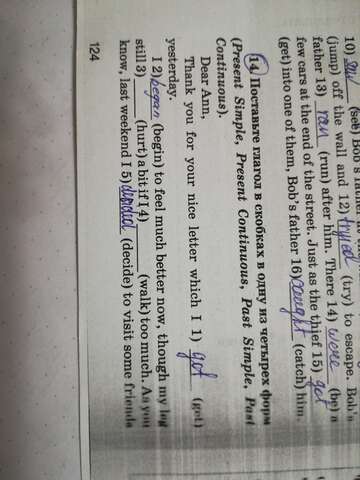 10) saw (see) Bob's
(jump) off the wall and 12) tryed (try) to escape. Bob's
father 13) ran (run) after him. There 14) were (be) a
few cars at the end of the street. Just as the thief 15) got
(get) into one of them, Bob's father 16) cought (catch) him.
14. Поставьте глагол в скобках в одну из четырех форм
(Present Simple, Present Continuous, Past Simple, Past
Continuous).
Dear Ann,
Thank you for your nice letter which I 1) got (get)
yesterday.
I 2) began (begin) to feel much better now, though my leg
still 3) ______ (hurt) a bit if I 4) ______ (walk) too much. As you
know, last weekend I 5) decided (decide) to visit some friends
124